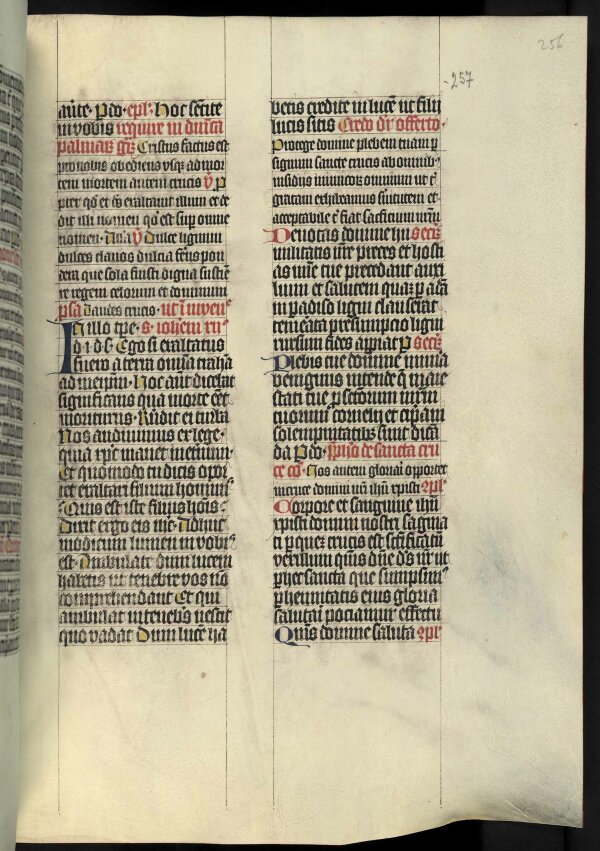 256
-257
aute· Pdo· epl· Hoc setite
in vobis require in dnica
palmarum gr Cristus factus est
pro nobis obediens usq ad mor
tem mortem autem crucis V P
pter qd et exaltauit illum et de
dit illi nomen qd est sup omne
nomen· Alla V Dulce lignum
dulces clauos dulcia ferens pon
dera que sola fuisti digna sustie
re regem celorum et dominum
psa dauites crucis· ut in inuen
In illo tpe· s· iohem xii
d· i· d· s· Ego si exaltatus
fuero a terra omnia traham
ad meipm· Hoc aut dicebat
significans qua morte eet
moriturus· Rndit ei turba
Nos audiuimus ex lege·
quia xpc manet ineternum
Et quomodo tu dicis opor
tet exaltari filium hominis
Quis est iste filius hois·
Dixit ergo eis ihc· Adhuc
modicum lumen in vobis
est· Ambulate dum lucem
habetis ut tenebre vos no
comprehendant Et qui
ambulat in tenebris nescit
quo vadat Dum luce ha
betis credite in luce ut filii
lucis sitis Credo dr offerto·
Protege domine plebem tuam p
signum sancte crucis ab omnib
insidiis inimicorum omnium ut
gratam exhibeamus seruitutem et
acceptabile fiat sacrificium nrm
Deuotas domine hu secr
militatis nre preces et hosti
as nre tue precedant auxi
lium et salutem quam p adam
in padiso ligni clauserat
temerata presumpcio ligni
rursum fides appiat P secr
Plebis tue domine munia
benignus intende q maie
stati tue p sctorum mrm
tuorum cornelii et cipani
solempnitatibus sunt dica
da Pdo· prefacio de sancta cru
ce co· Nos autem gloriari oportet
in cruce domini nri ihu xpisti xpl
Corpore et sanguine ihu
xpisti domini nostri sagina
ti p quem crucis est scificatum
vexillum quis dne ds nr ut
p hec sancta que sumpsim
phennitatis eius gloria
salutari pociamur effectu
Quis domine saluta xpl